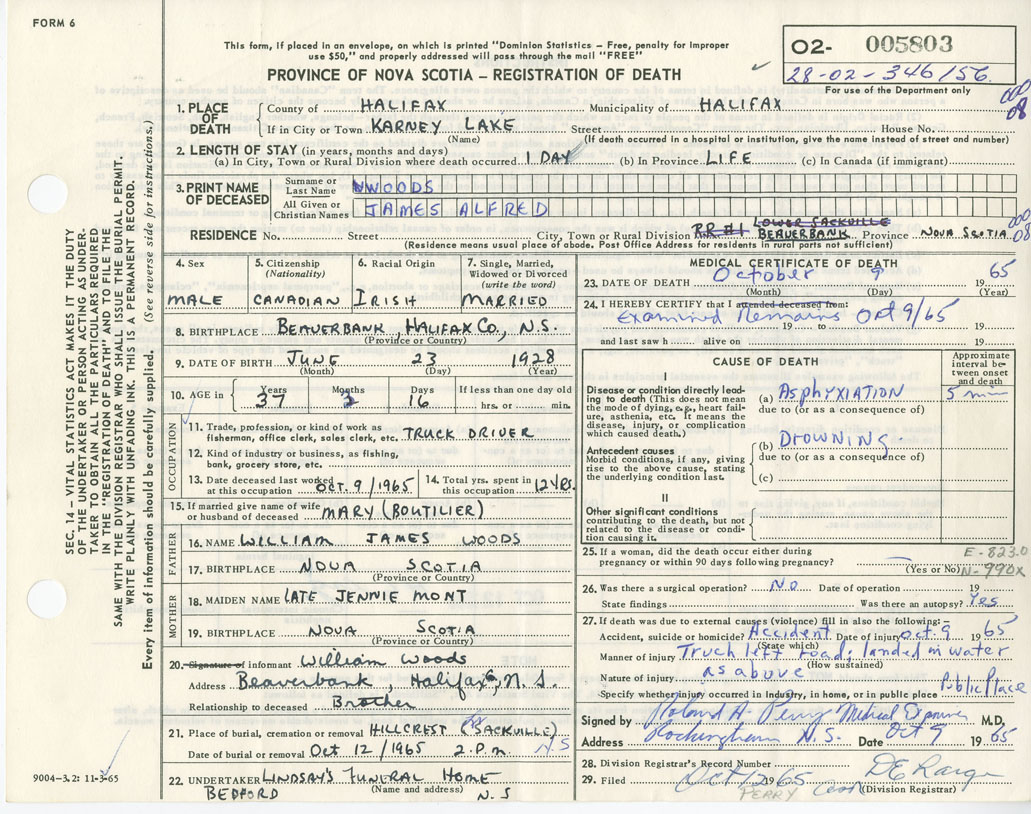 FORM 6
This form, if placed in an envelope, on which is printed "Dominion Statistics – Free, penalty for improper
use $50," and properly addressed will pass through the mail "FREE"
PROVINCE OF NOVA SCOTIA – REGISTRATION OF DEATH
02- 005803
28-02-346/56.
For use of the Department only
000
08
SEC. 14 – VITAL STATISTICS ACT MAKES IT THE DUTY
OF THE UNDERTAKER OR PERSON ACTING AS UNDER-
TAKER TO OBTAIN ALL THE PARTICULARS REQUIRED
IN THE "REGISTRATION OF DEATH" AND TO FILE THE
SAME WITH THE DIVISION REGISTRAR WHO SHALL ISSUE THE BURIAL PERMIT.
WRITE PLAINLY WITH UNFADING INK. THIS IS A PERMANENT RECORD.
Every item of information should be carefully supplied. (See reverse side for instructions.)
1. PLACE OF DEATH
County of HALIFAX Municipality of HALIFAX
If in City or Town KARNEY LAKE Street House No.
(Name) (If death occurred in a hospital or institution, give the name instead of street and number)
2. LENGTH OF STAY (in years, months and days)
(a) In City, Town or Rural Division where death occurred 1 DAY (b) In Province LIFE (c) In Canada (if immigrant)
3. PRINT NAME OF DECEASED
Surname or Last Name WOODS
All Given or Christian Names JAMES ALFRED
RESIDENCE No. Street City, Town or Rural Division RR #1 LOWER SACKVILLE BEAVERBANK Province NOVA SCOTIA
000
08
(Residence means usual place of abode. Post Office Address for residents in rural parts not sufficient)
4. Sex
MALE
5. Citizenship
(Nationality)
CANADIAN
6. Racial Origin
IRISH
7. Single, Married,
Widowed or Divorced
(write the word)
MARRIED
8. BIRTHPLACE BEAVERBANK, HALIFAX CO., N.S.
(Province or Country)
9. DATE OF BIRTH JUNE 23 1928
(Month) (Day) (Year)
10. AGE in Years Months Days If less than one day old
37 3 16 hrs. or min.
OCCUPATION
11. Trade, profession, or kind of work as
fisherman, office clerk, sales clerk, etc. TRUCK DRIVER
12. Kind of industry or business, as fishing,
bank, grocery store, etc.
13. Date deceased last worked
at this occupation OCT. 9/1965
14. Total yrs. spent in
this occupation 12 YRS.
15. If married give name of wife
or husband of deceased MARY (BOUTILIER)
FATHER
16. NAME WILLIAM JAMES WOODS
17. BIRTHPLACE NOVA SCOTIA
(Province or Country)
MOTHER
18. MAIDEN NAME LATE JENNIE MONT
19. BIRTHPLACE NOVA SCOTIA
(Province or Country)
20. Signature of informant William Woods
Address Beaverbank, Halifax Co, N.S.
Relationship to deceased Brother
21. Place of burial, cremation or removal HILLCREST (SACKVILLE)
N.S
Date of burial or removal Oct 12/1965 2 P.m.
22. UNDERTAKER LINDSAY'S FUNERAL HOME
(Name and address)
BEDFORD N.S
9004-3.2: 11-3-65
MEDICAL CERTIFICATE OF DEATH
23. DATE OF DEATH October 9 1965
(Month) (Day) (Year)
24. I HEREBY CERTIFY that I attended deceased from:
Examined Remains Oct 9/65
19 to 19
and last saw h alive on 19
CAUSE OF DEATH
Approximate
interval be-
tween onset
and death
I
Disease or condition directly lead-
ing to death (This does not mean
the mode of dying, e.g., heart fail-
ure, asthenia, etc. It means the
disease, injury, or complication
which caused death.)
(a) Asphyxiation 5 min
due to (or as a consequence of)
Antecedent causes
Morbid conditions, if any, giving
rise to the above cause, stating
the underlying condition last.
(b) Drowning
due to (or as a consequence of)
(c)
II
Other significant conditions
contributing to the death, but not
related to the disease or condi-
tion causing it.
25. If a woman, did the death occur either during
pregnancy or within 90 days following pregnancy?
(Yes or No)
E-823.0
N-990X
26. Was there a surgical operation? No Date of operation 19
State findings Was there an autopsy? Yes
27. If death was due to external causes (violence) fill in also the following:–
Accident, suicide or homicide? Accident Date of injury Oct. 9 1965
(State which)
Manner of injury Truck left road; landed in water
(How sustained)
Nature of injury as above
Specify whether injury occurred in industry, in home, or in public place Public Place
Signed by Roland H. Perry Medical Examiner M.D.
Address Rockingham N.S. Date Oct 9 1965
28. Division Registrar's Record Number
29. Filed Oct 12 1965
(Division Registrar)
PERRY